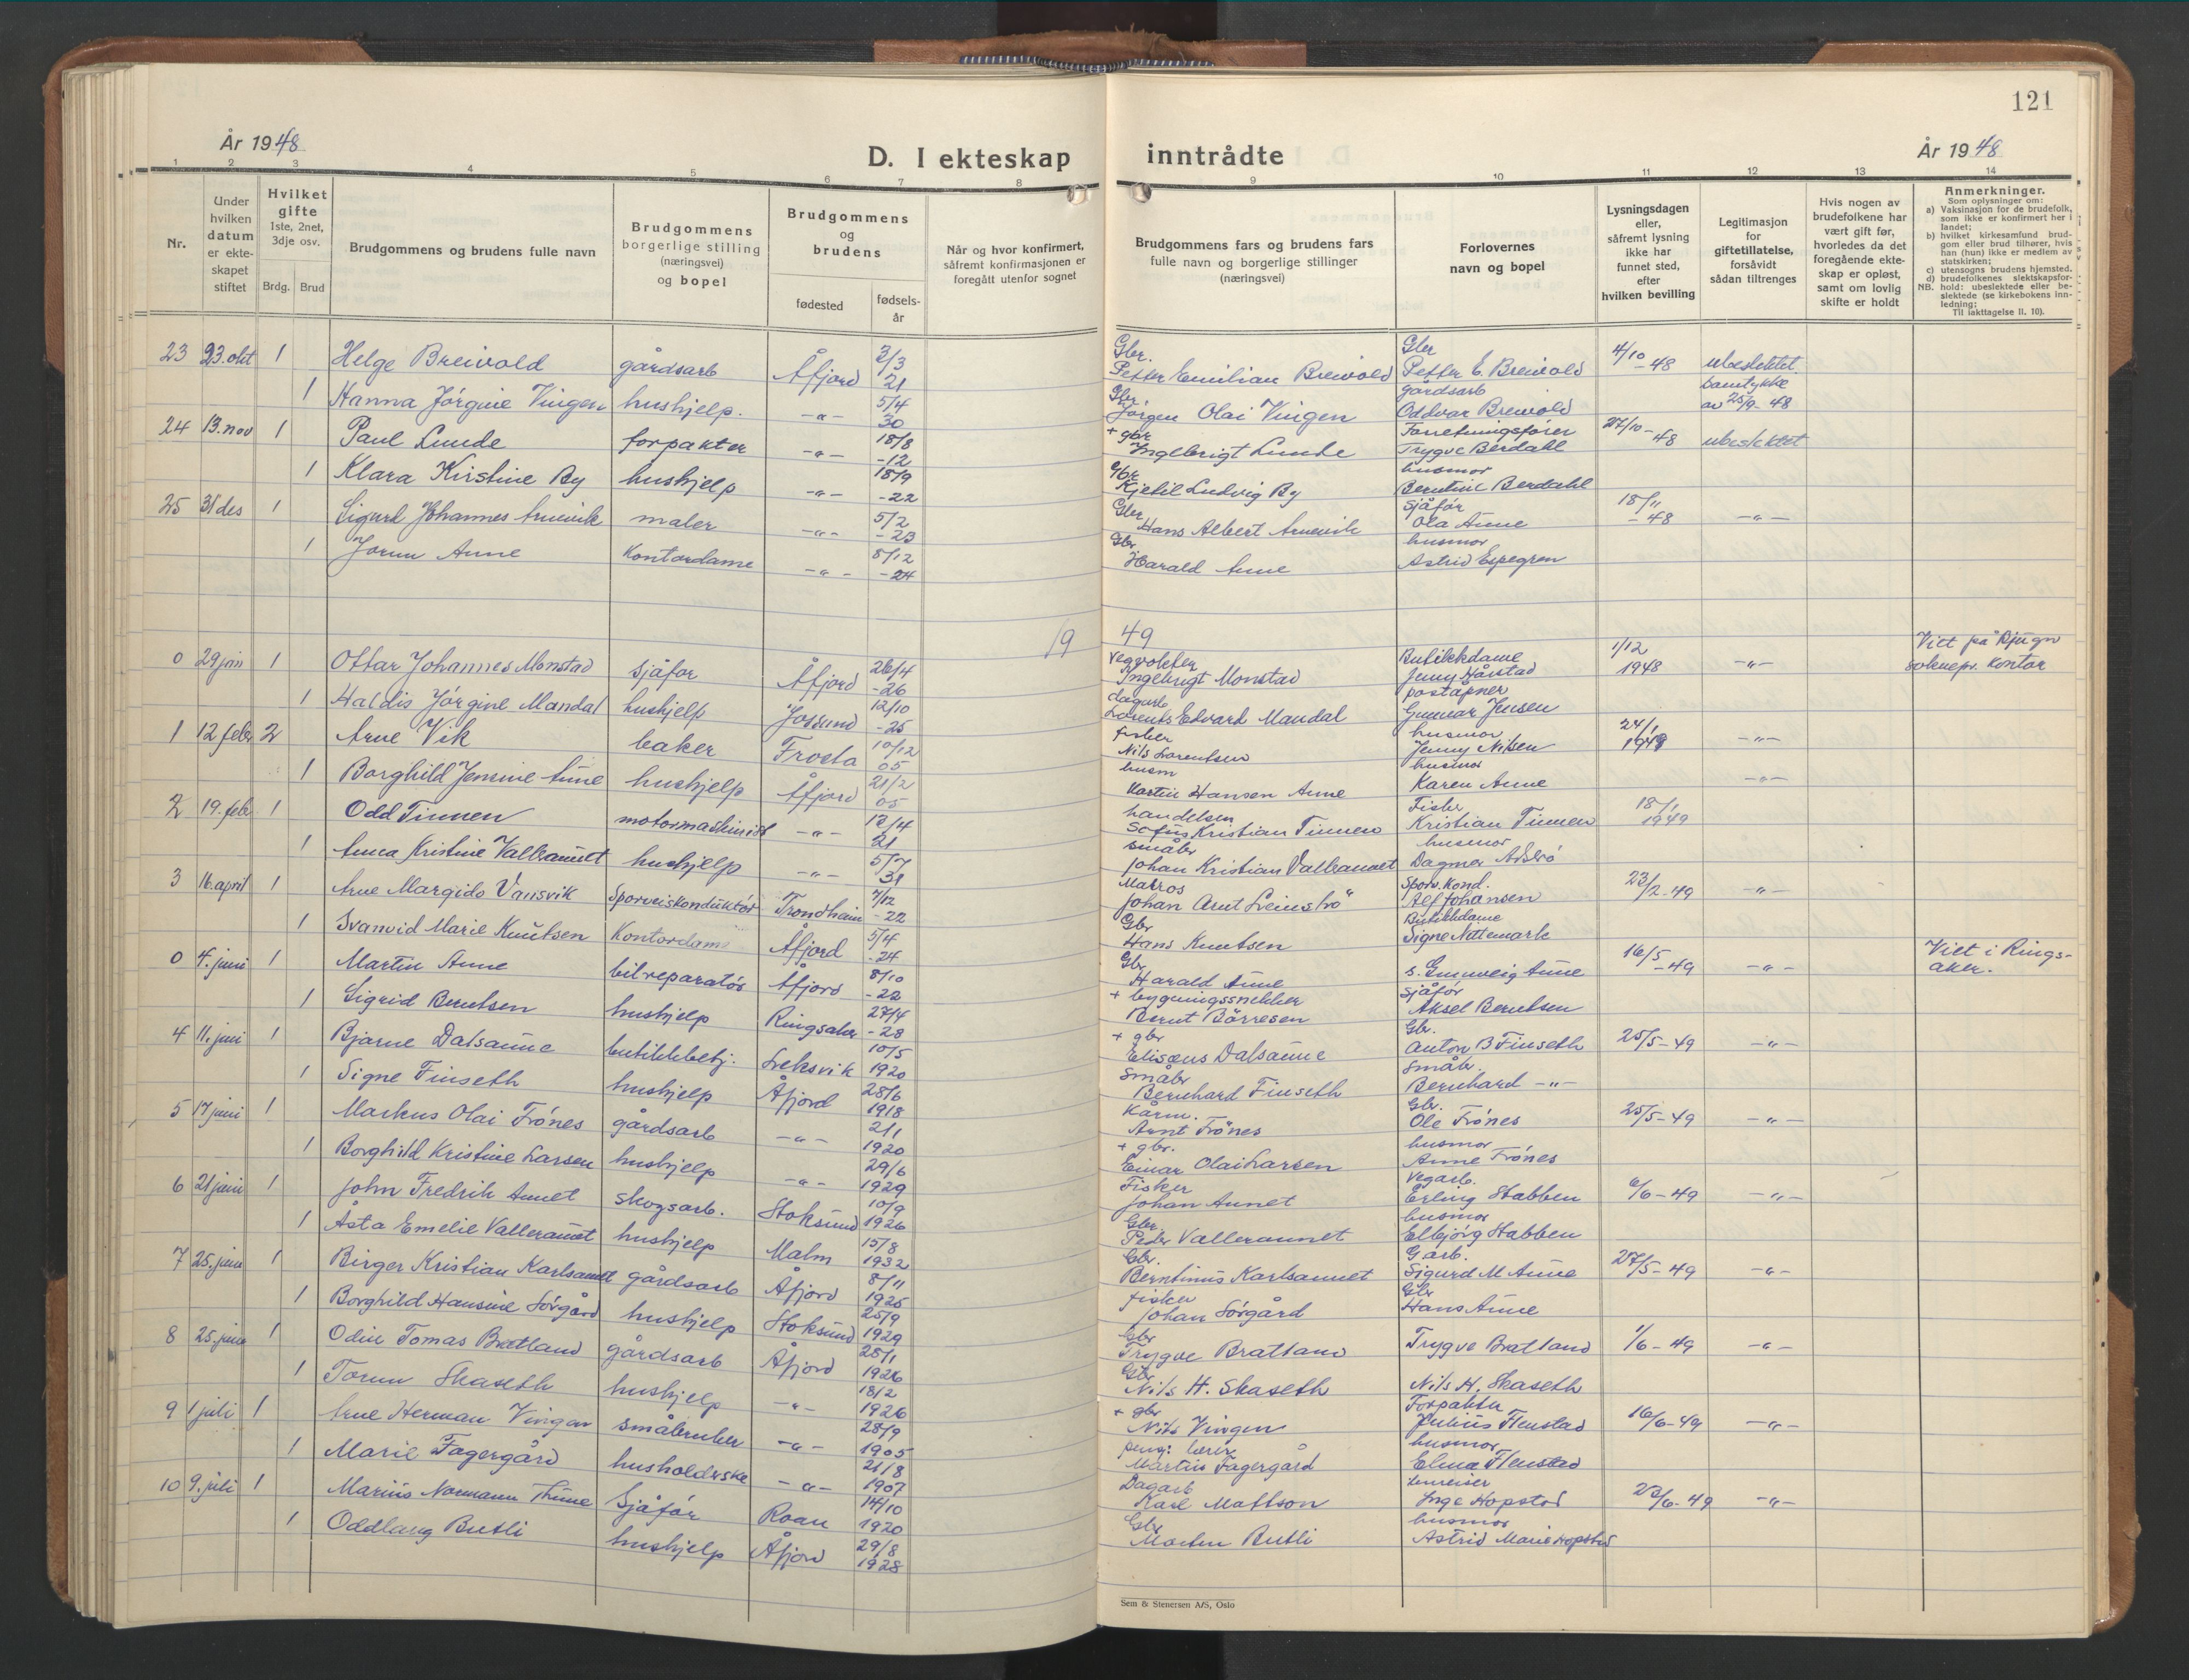 121
År 1948
D. I ekteskap inntrådte
År 1948
1 2 3 4 5 6 7 8 9 10 11 12 13 14
Nr.
Under hvilken datum er ekteskapet stiftet
Hvilket gifte 1ste, 2net, 3dje osv.
Brdg. Brud
Brudgommens og brudens fulle navn
Brudgommens borgerlige stilling (næringsvei) og bopel
Brudgommens og brudens
fødested
fødselsår
Når og hvor konfirmert, såfremt konfirmasjonen er foregått utenfor sognet
Brudgommens fars og brudens fars fulle navn og borgerlige stillinger (næringsvei)
Forlovernes navn og bopel
Lysningsdagen eller, såfremt lysning ikke har funnet sted, efter hvilken bevilling
Legitimasjon for giftetillatelse, forsåvidt sådan tiltrenges
Hvis nogen av brudefolkene har vært gift før, hvorledes da det foregående ekteskap er opløst, samt om lovlig skifte er holdt
Anmerkninger.
Som oplysninger om:
a) Vaksinasjon for de brudefolk, som ikke er konfirmert her i landet;
b) hvilket kirkesamfund brudgom eller brud tilhører, hvis han (hun) ikke er medlem av statskirken;
c) utensogns brudens hjemsted.
d) brudefolkenes slektskapsforhold: ubeslektede eller beslektede (se kirkebokens innledning;
NB.
Til iakttagelse II. 10).
23 23. okt 1 Helge Breivold gårdsarb Åfjord 3/3 21 Gbr. Petter Emilian Breivold Gbr Petter E. Breivold 4/10-48 ubeslektet.
1 Hanna Jørgine Vingen hushjelp. -"- 5/4 30 Gbr Jørgen Olai Vingen gårdsarb Oddvar Breivold Samtykke av 25/9-48
24 13. nov 1 Paul Lunde forpakter -"- 18/8 -12 + gbr Ingebrigt Lunde Forretningsfører Trygve Berdahl 27/10-48 ubeslektet
1 Klara Kristine By hushjelp -"- 18/9 -22 Gbr Kjetil Ludvig By husmor Berntine Berdahl
25 31 des 1 Sigurd Johannes Arnevik maler -"- 5/2 -23 Gbr Hans Albert Arnevik Sjåfør Ola Aune 18/11-48 -"-
1 Jorun Aune Kontordame -"- 8/12 -24 Gbr Harald Aune husmor Astrid Espegren
19 49
0 29 jan 1 Ottar Johannes Monstad Sjåfør Åfjord 26/4 -26 Vegvokter Ingebrigt Monstad Butikkdame Jenny Hårstad 1/12 1948 -"- Viet på Bjugn soknepr. kontor
1 Haldis Jørgine Mandal hushjelp Jøssund 12/10 -25 dagarb Lorents Edvard Mandal poståpner Gunnar Jensen
1 12 febr 2 Arne Vik baker Frosta 10/12 05 fisker Nils Lorentsen husmor Jenny Nilsen 24/1 1949 -"-
1 Borghild Jensine Aune hushjelp Åfjord 21/2 05 husm Martin Hansen Aune husmor Karen Aune -"-
2 19. febr 1 Odd Tinnen motormaskinist -"- 12/4 21 handelsm Sofus Kristian Tinnen Fisker Kristian Tinnen 18/1 1949
1 Anna Kristine Valleraunet hushjelp -"- 5/7 31 småbr Johan Kristian Valleraunet husmor Dagmar
3 16. april 1 Arne Margido Vansvik Sporveiskonduktør Trondheim 7/12 -22 Matros Johan Arnt Leinstrø Sporv. kond. Alf Johansen 23/2-49 -"-
1 Svanvid Marie Knutsen Kontordame Åfjord 5/4 -24 Gbr Hans Knutsen Butikkdame Signe Nettemark
0 4. juni 1 Martin Aune bilreparatør Åfjord 8/10 -22 Gbr Harald Aune s. Gunnveig Aune 16/5-49 -"- Viet i Ringsaker.
1 Sigrid Berntsen hushjelp Ringsaker 27/4 -28 + bygningssnekker Bernt Børresen Sjåfør Aksel Berntsen
4 11. juni 1 Bjarne Dalsaune butikkbetj. Leksvik 10/5 1920 + gbr Elisæus Dalsaune Gbr. Anton B Finseth 25/5-49 -"-
1 Signe Finseth hushjelp Åfjord 28/6 1918 Småbr Bernhard Finseth Småbr. Bernhard -"-
5 17 juni 1 Markus Olai Frönes gårdsarb -"- 2/1 1920 Kårm. Arnt Frönes Gbr. Ole Frönes 25/5-49 -"-
1 Borghild Kristine Larsen hushjelp -"- 29/6 1929 + gbr. Einar Olai Larsen husmor Anne Frönes
6 21 juni 1 John Fredrik Aunet skogsarb. Stoksund 10/9 1926 Fisker Johan Aunet Vegarb. Erling Stabben 6/6-49 -"-
1 Åsta Emelie Valleraunet hushjelp Malm 15/8 1932 Gbr. Peder Valleraunet husmor Elbjørg Stabben
7 25. juni 1 Birger Kristian Karlsaunet gårdsarb Åfjord 8/11 1925 Gbr. Berntinus Karlsaunet G arb. Sigurd M Aune 27/5-49 -"-
1 Borghild Hansine Sørgård hushjelp Stoksund 25/9 1929 fisker Johan Sørgård Gbr Hans Aune
8 25. juni 1 Odin Tomas Bratland gårdsarb Åfjord 25/1 1926 Gbr Trygve Bratland Trygve Bratland 1/6-49 -"-
1 Torun Skaseth hushjelp -"- 18/2 1926 Gbr Nils H. Skaseth Nils H. Skaseth
9 1 juli 1 Arne Herman Vingan småbruker -"- 28/9 1905 + gbr Nils Vingen Forpakter Julius Flenstad 16/6-49 -"-
1 Marie Fagergård husholderske -"- 21/8 1907 pensj. lærer Martin Fagergård husmor Elma Flenstad
10 9. juli 1 Marius Normann Thune Sjåfør Roan 14/10 1920 Dagarb Karl Mattson Inge Hopstad 23/6-49 -"-
1 Oddlaug Butli hushjelp Åfjord 29/8 1928 Gbr Morten Butli husmor Astrid Marie Hopstad
Sem & Stenersen A/S, Oslo